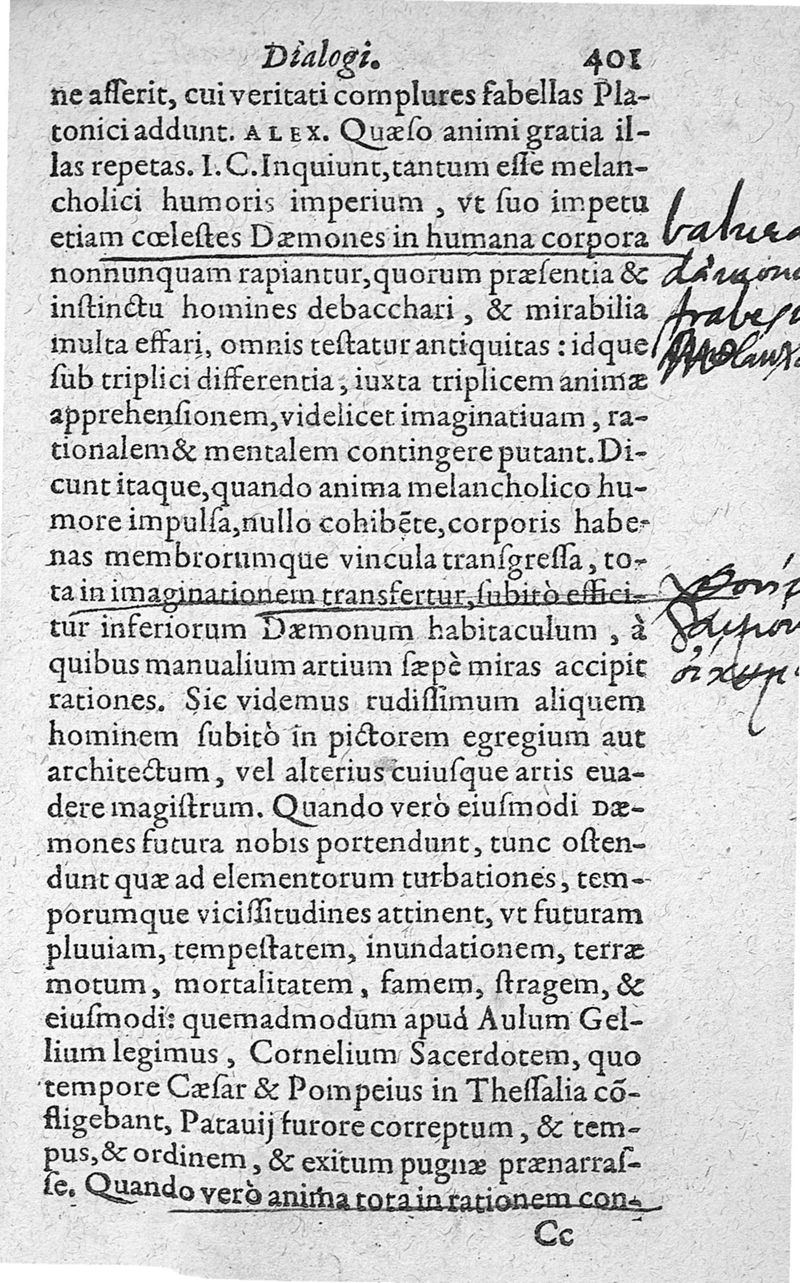 Dialogi. 401
ne aſſerit, cui veritati complures fabellas Pla-
tonici addunt. ALEX. Quæſo animi gratia il-
las repetas. I. C. Inquiunt, tantum eſſe melan-
cholici humoris imperium, vt ſuo impetu
etiam cœleſtes Dæmones in humana corpora
nonnunquam rapiantur, quorum præſentia &
inſtinctu homines debacchari, & mirabilia
multa effari, omnis teſtatur antiquitas: idque
ſub triplici differentia, iuxta triplicem animæ
apprehenſionem, videlicet imaginatiuam, ra-
tionalem & mentalem contingere putant. Di-
cunt itaque, quando anima melancholico hu-
more impulſa, nullo cohibẽte, corporis habe-
nas membrorumque vincula tranſgreſſa, to-
ta in imaginationem transfertur, ſubitò effici-
tur inferiorum Dæmonum habitaculum, à
quibus manualium artium ſæpè miras accipit
rationes. Sic videmus rudiſſimum aliquem
hominem ſubitò in pictorem egregium aut
architectum, vel alterius cuiuſque artis eua-
dere magiſtrum. Quando verò eiuſmodi Dæ-
mones futura nobis portendunt, tunc oſten-
dunt quæ ad elementorum turbationes, tem-
porumque viciſſitudines attinent, vt futuram
pluuiam, tempeſtatem, inundationem, terræ
motum, mortalitatem, famem, ſtragem, &
eiuſmodi: quemadmodum apud Aulum Gel-
lium legimus, Cornelium Sacerdotem, quo
tempore Cæſar & Pompeius in Theſſalia cõ-
fligebant, Patauij furore correptum, & tem-
pus, & ordinem, & exitum pugnæ prænarraſ-
ſe. Quando verò anima tota in rationem con-
Cc